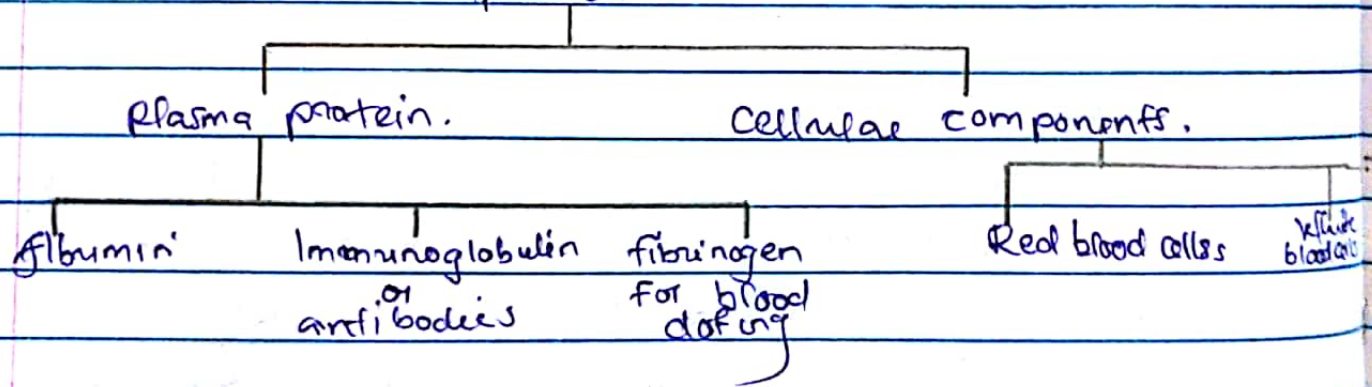 Plasma protein.
Cellular components.
Albumin
Immunoglobulin
or
antibodies
fibrinogen
for blood
cloting
Red blood cells
White
blood cells